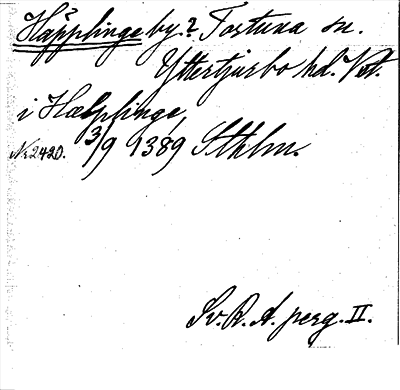 Häpplinge by? Tortuna sn.
Yttertjurbo hd. Vstl.
i Hælplinge,
Nr 2420. 3/9 1389 Sthlm.
Sv. R. A. perg. II.